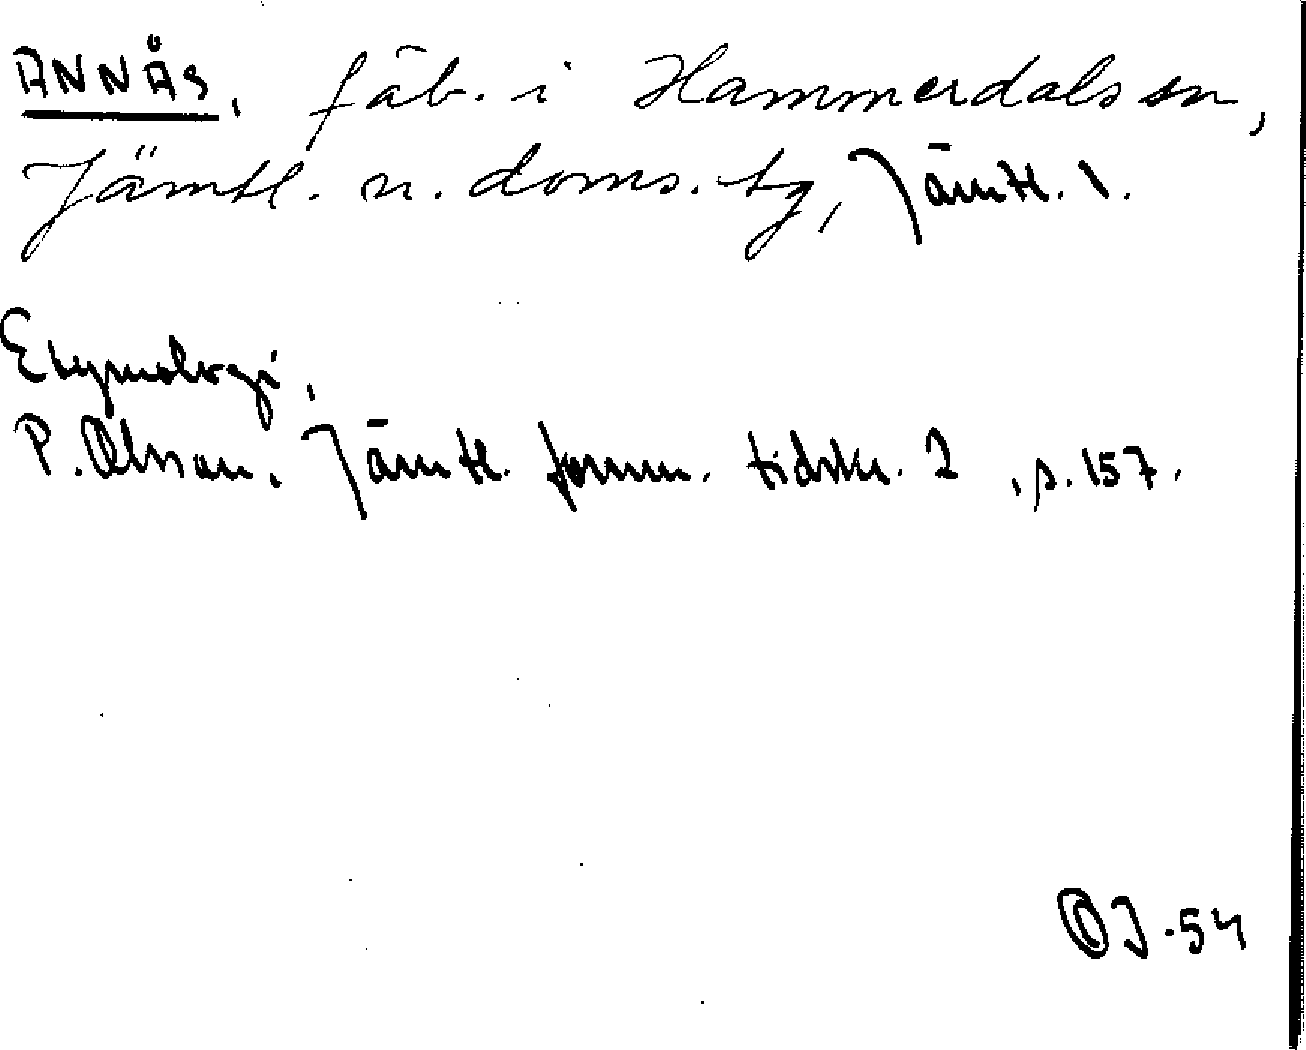 ANNÅS, fäb. i Hammerdals sn,
Jämtl. n. doms. tg, Jämtl. l.
Etymologi,
P. Olsson. Jämtl. fornm. tidskr. 2, s. 157.
OJ-54